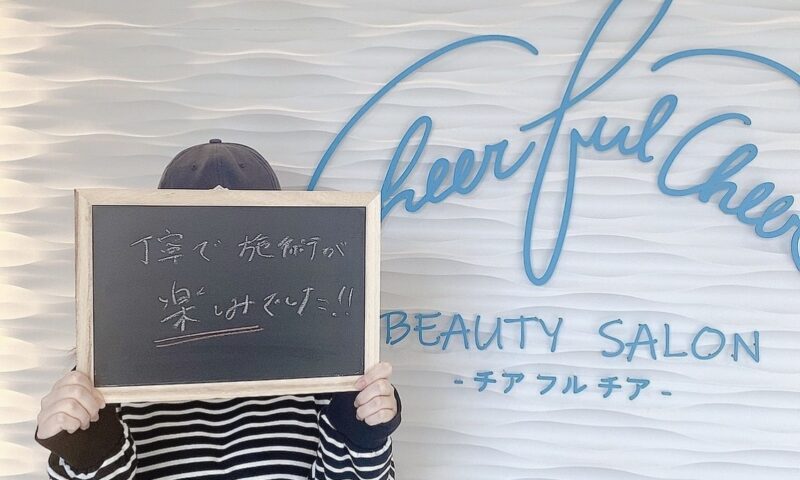 丁寧で 施術が
楽しみでした!!
Cheerful Cheer
BEAUTY SALON
-チアフルチア-